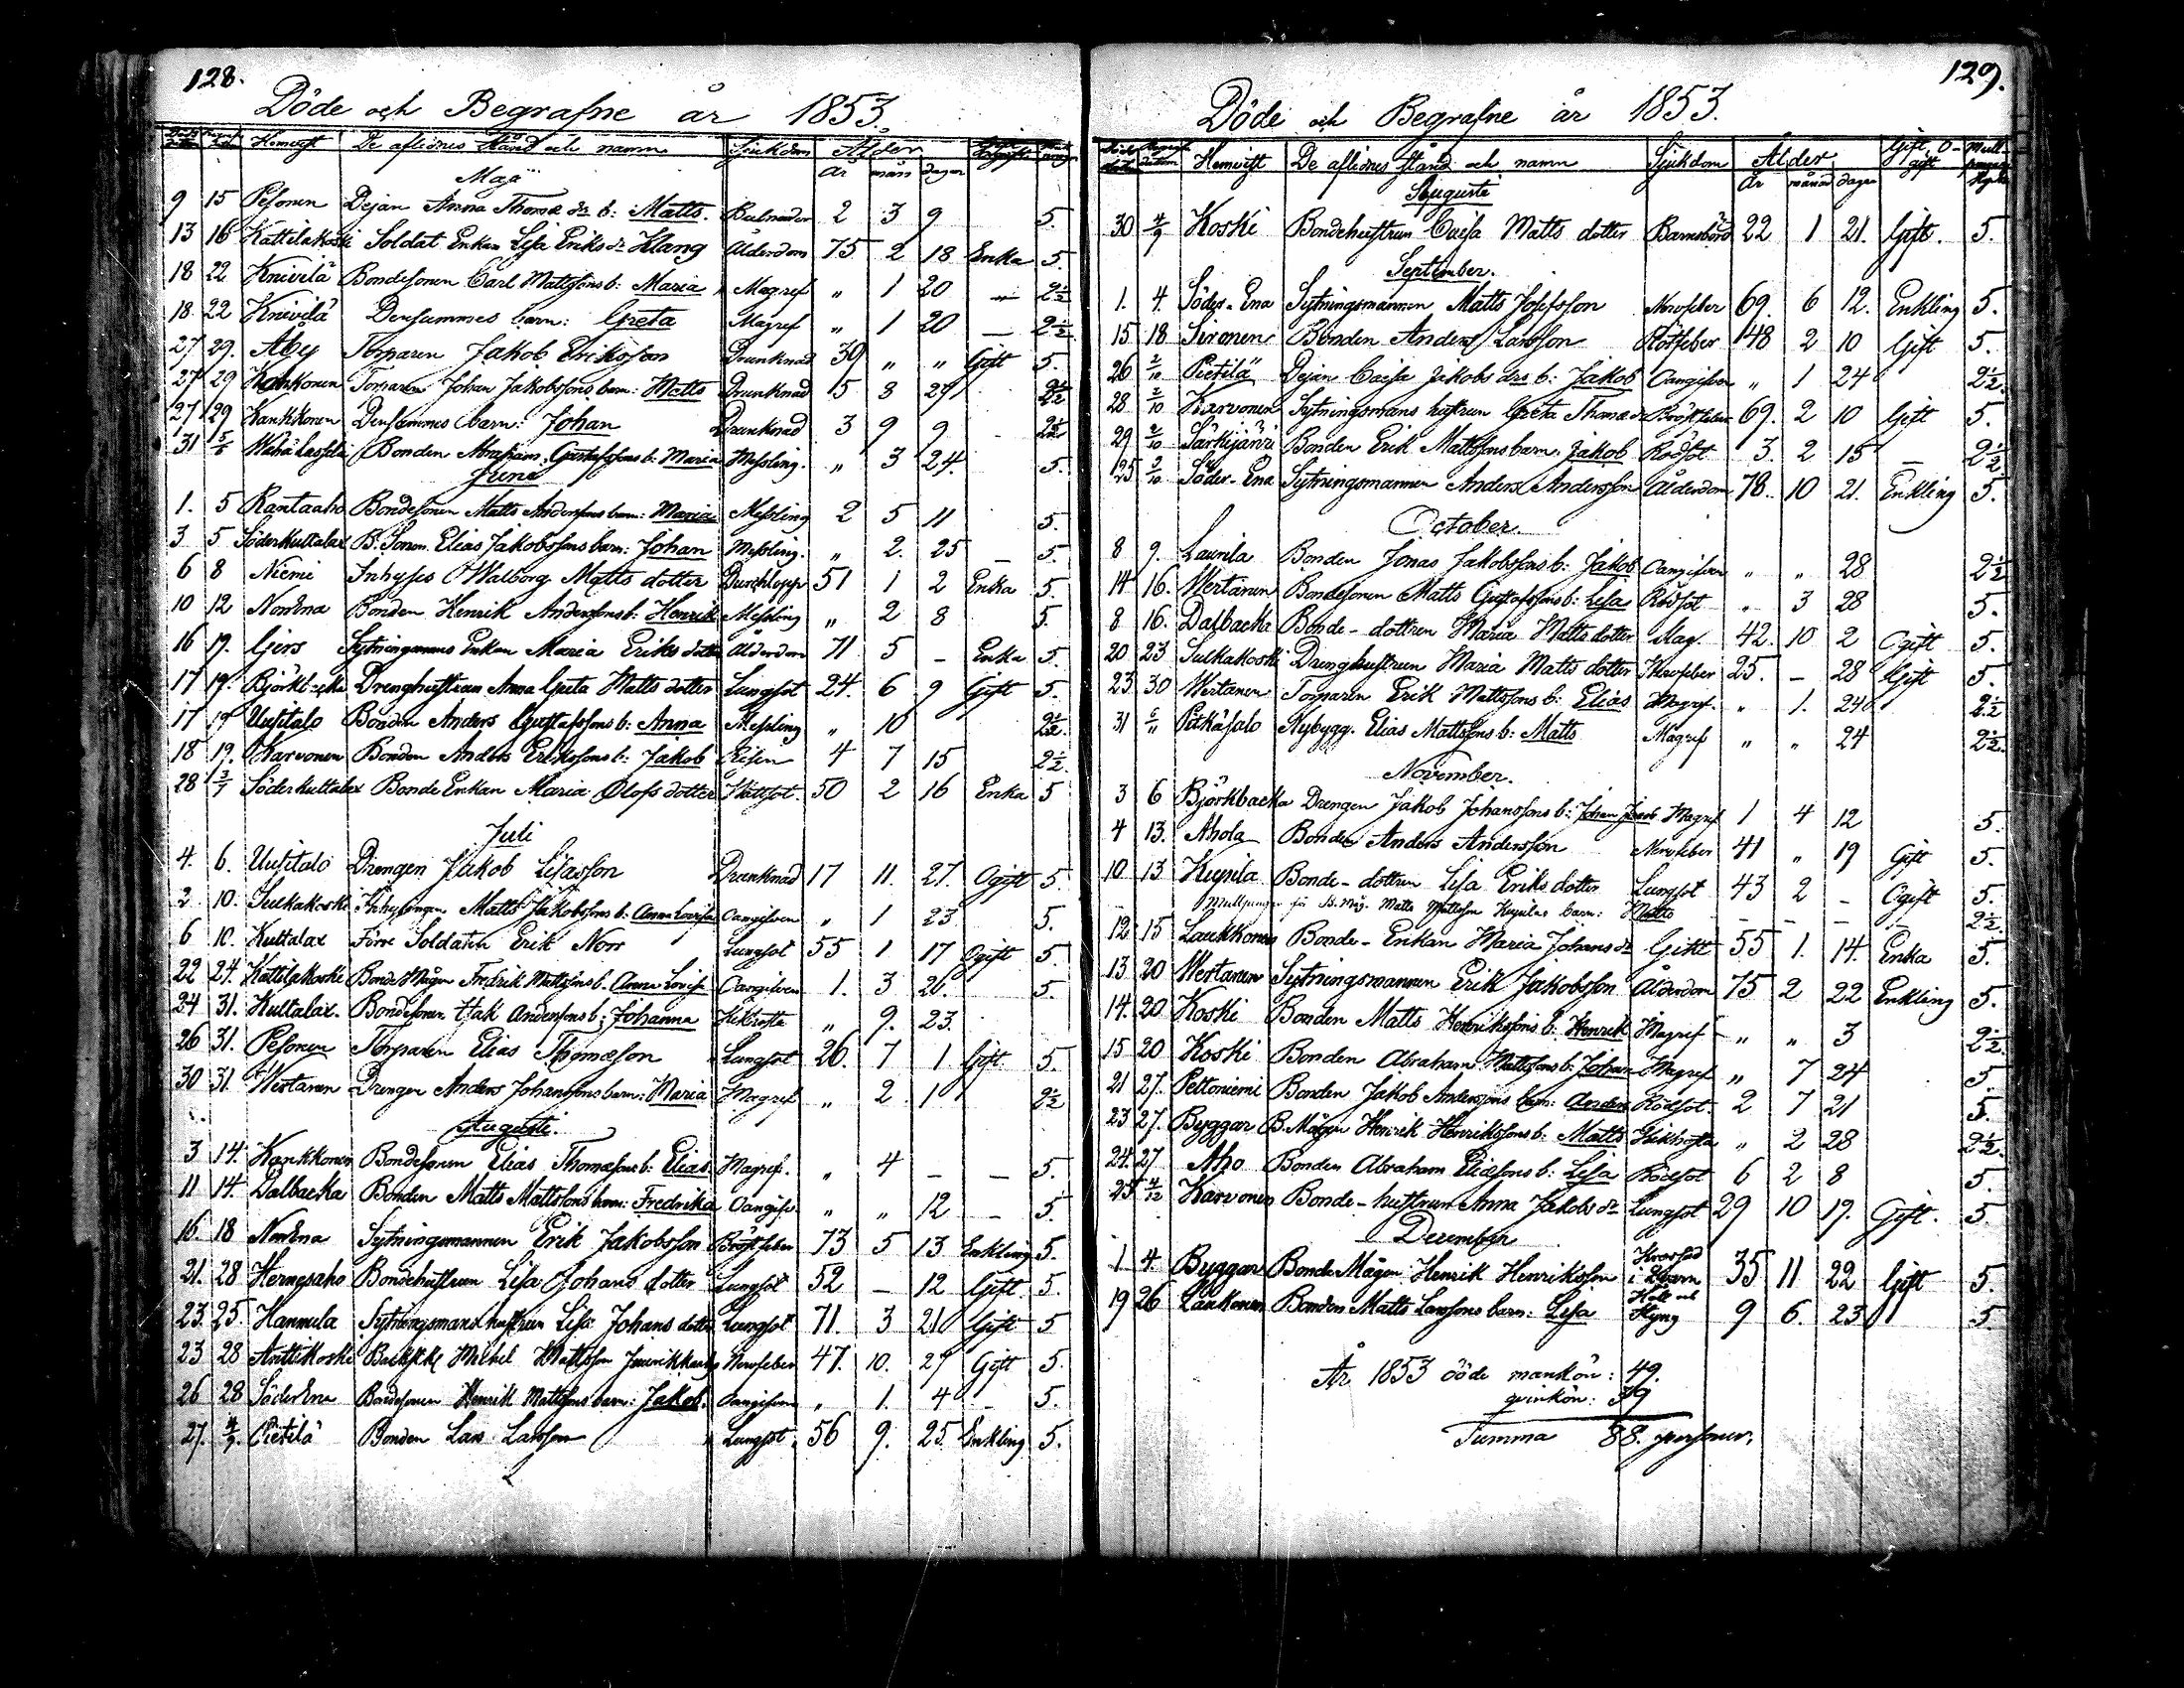 128.
Döde och Begrafne år 1853.
Hemvist De aflidnes stånd och namn Sjukdom Ålder
år mån dagar
Maji
9 15 Pesonen Dejan Anna Thomæ dr b: Matts. 2 3 9 5.
13 16 Kattilakoski Soldat Enkan Lisa Eriks dr Klang Ålderdom 75 2 18 Enka 5.
18 22 Knivilä Bondesonen Carl Mattssons b: Maria Magref „ 1 20 — 2½
18 22 Knivilä Densammes barn: Greta Magref „ 1 20 — 2½
27 29. Åby Torparen Jakob Eriksson Drunknad 39 „ „ Gift 5.
27 29 Kankkonen Torparen Johan Jakobssons barn: Matts Drunknad 5 8 29 2½
27 29 Kankkonen Densammes barn: Johan Drunknad 3 9 9 2½
31 5/6 Bonden Abraham Gustafssons b: Maria Messling. „ 3 24. 5.
Junii
1. 5 Rantaaho Bondesonen Matts Anderssons barn: Maria Messling 2 5 11 5.
3 5 Söderkultalax B. Sonen Elias Jakobssons barn: Johan Messling. „ 2. 25 — 5.
6 8 Niemi Inhyses Walborg Matts dotter Durchlopp 51 1 2 Enka 5.
10 12 NorrEna Bonden Henrik Anderssons b: Henrik Messling „ 2 8 5.
16 19. Gers Sytningsmans Enkan Maria Eriks dotter Ålderdom 71 5 — Enka 5.
17 19. Björkbacka Drenghustrun Anna Greta Matts dotter Lungsot 24. 6 9 Gift 5.
17 19 Uusitalo Bonden Anders Gustafssons b: Anna Messling „ 10 2½.
18 19. Karvonen Bonden Anders Erikssons b: Jakob 4 7 15 2½.
28 3/7 Söderkultalax Bonde Enkan Maria Olofs dotter 50 2 16 Enka 5
Juli
4. 6. Uusitalo Drengen Jakob Lisasson Drunknad 17 11. 27. Ogift 5.
2 10. Sulkakoski Inhysingen Matts Jakobssons b: Anna Lovisa Oangifven „ 1 23 5.
6 10. Kultalax Förre Soldaten Erik Norr Lungsot 55 1 17 Ogift 5.
22 24. Kattilakoski Bonde Mågen Fredrik Mattssons b. Anna Lovisa Oangifven 1. 3 26. 5.
24 31. Kultalax. Bondesonen Isak Anderssons b: Johanna Kikhosta „ 9. 23.
26 31. Pesonen Torparen Elias Thomasson Lungsot 26. 7 1 Gift 5.
30 31. Wertanen Drengen Anders Johanssons barn: Maria Magref „ 2 1 2½
Augusti.
3 14. Kankkonen Bondesonen Elias Thomæsons b: Elias Magref. „ 4 — — 5.
11 14. Dalbacka Bonden Matts Mattssons barn: Fredrika Oangifv. „ „ 12 — 5.
16. 18 NorrEna Sytningsmannen Erik Jakobsson Bröstfeber 73 5 13 Enkling 5.
21. 28 Herneaho Bondehustrun Lisa Johans dotter Lungsot 52 — 12 Gift. 5.
23. 25. Hannula Sytningsmans hustrun Lisa Johans dotter Lungsot 71. 3 21 Gift 5
23 28 Anttikoski Mattsson Nervfeber 47. 10. 29 Gift 5.
26 28 SöderEna Bondesonen Henrik Mattssons barn: Jakob. Oangifven „ 1. 4 — 5.
27. 4/9. Pietilä Bonden Lars Larsson Lungsot 56 9. 25 Enkling 5.
129.
Döde och Begrafne år 1853.
Hemvist De aflidnes stånd och namn Sjukdom Ålder Gift, O-gift
år månad dagar
Augusti
30 4/9 Koski Bondehustrun Caisa Matts dotter Barnsbörd 22 1 21. Gift. 5.
September.
1. 4. Söder-Ena Sytningsmannen Matts Josefsson Nervfeber 69. 6 12. Enkling 5.
15 18 Sironen Bonden Anders Larsson Rötfeber 48 2 10 Gift 5.
26 2/10 Pietilä Dejan Caisa Jakobs drs b: Jakob Oangifven „ 1 24 2½.
28 2/10 Karvonen Sytningsmans hustrun Greta Thomæ dr Bröstfeber 69. 2 10 Gift 5.
29 2/10 Särkijärvi Bonden Erik Mattssons barn: Jakob Rödsot 3. 2 15 — 2½.
25 2/10 Söder-Ena Sytningsmannen Anders Andersson Ålderdom 78. 10 21. Enkling 5.
October.
8 9. Launila Bonden Jonas Jakobssons b: Jakob Oangifven „ „ 28 2½
14 16. Wertanen Bondesonen Matts Gustafssons b: Lisa Rödsot „ 3 28 5.
8 16. Dalbacka Bonde-dottren Maria Matts dotter Slag. 42. 10 2 Ogift 5.
20 23 Sulkakoski Drenghustrun Maria Matts dotter Nervfeber 25. — 28 Gift 5.
23 30 Wertanen Torparen Erik Mattssons b: Elias Magref. „ 1. 24 2½
31 6/11 Pitkäsalo Nybygg. Elias Mattssons b: Matts Magref „ „ 24 2½.
November.
3 6 Björkbacka Drengen Jakob Johanssons b: Johan Jakob Magref 1 4 12 5.
4 13. Ahola Bonden Anders Andersson Nervfeber 41 „ 19 Gift 5.
10 13 Kupila Bonde-dottren Lisa Eriks dotter Lungsot 43 2 — Ogift 5.
Mullpengar för Matts Mattsson Kupilas barn: Matts — — — — 2½.
12 15 Laukkonen Bonde-Enkan Maria Johans dr Gikt 55 1. 14. Enka 5.
13 20 Wertanen Sytningsmannen Erik Jakobsson Ålderdom 75 2 22 Enkling 5.
14. 20. Koski Bonden Matts Henrikssons b: Henrik Magref „ „ 3 2½.
15 20 Koski Bonden Abraham Mattssons b: Johan Magref „ 7 24 5.
21 27. Peltoniemi Bonden Jakob Anderssons barn: Anders Rödsot. 2 7 21 5.
23 27. Byggar B. Mågen Henrik Henrikssons b: Matts Kikhosta „ 2 28 2½.
24. 27 Aho Bonden Abraham Eliæsons b: Lisa Rödsot 6 2 8 5.
25 4/12 Karvonen Bonde-hustrun Anna Jakobs dr Lungsot 29 10 19. Gift. 5.
December
1 4. Byggar Bonde Mågen Henrik Henriksson Krossad i Qvarn 35 11 22 Gift 5.
19 26 Laukonen Bonden Matts Larssons barn: Lisa Håll och Styng 9 6. 23 5.
År 1853 döde mankön: 49.
qvinkön: 39
Summa 88. personer.